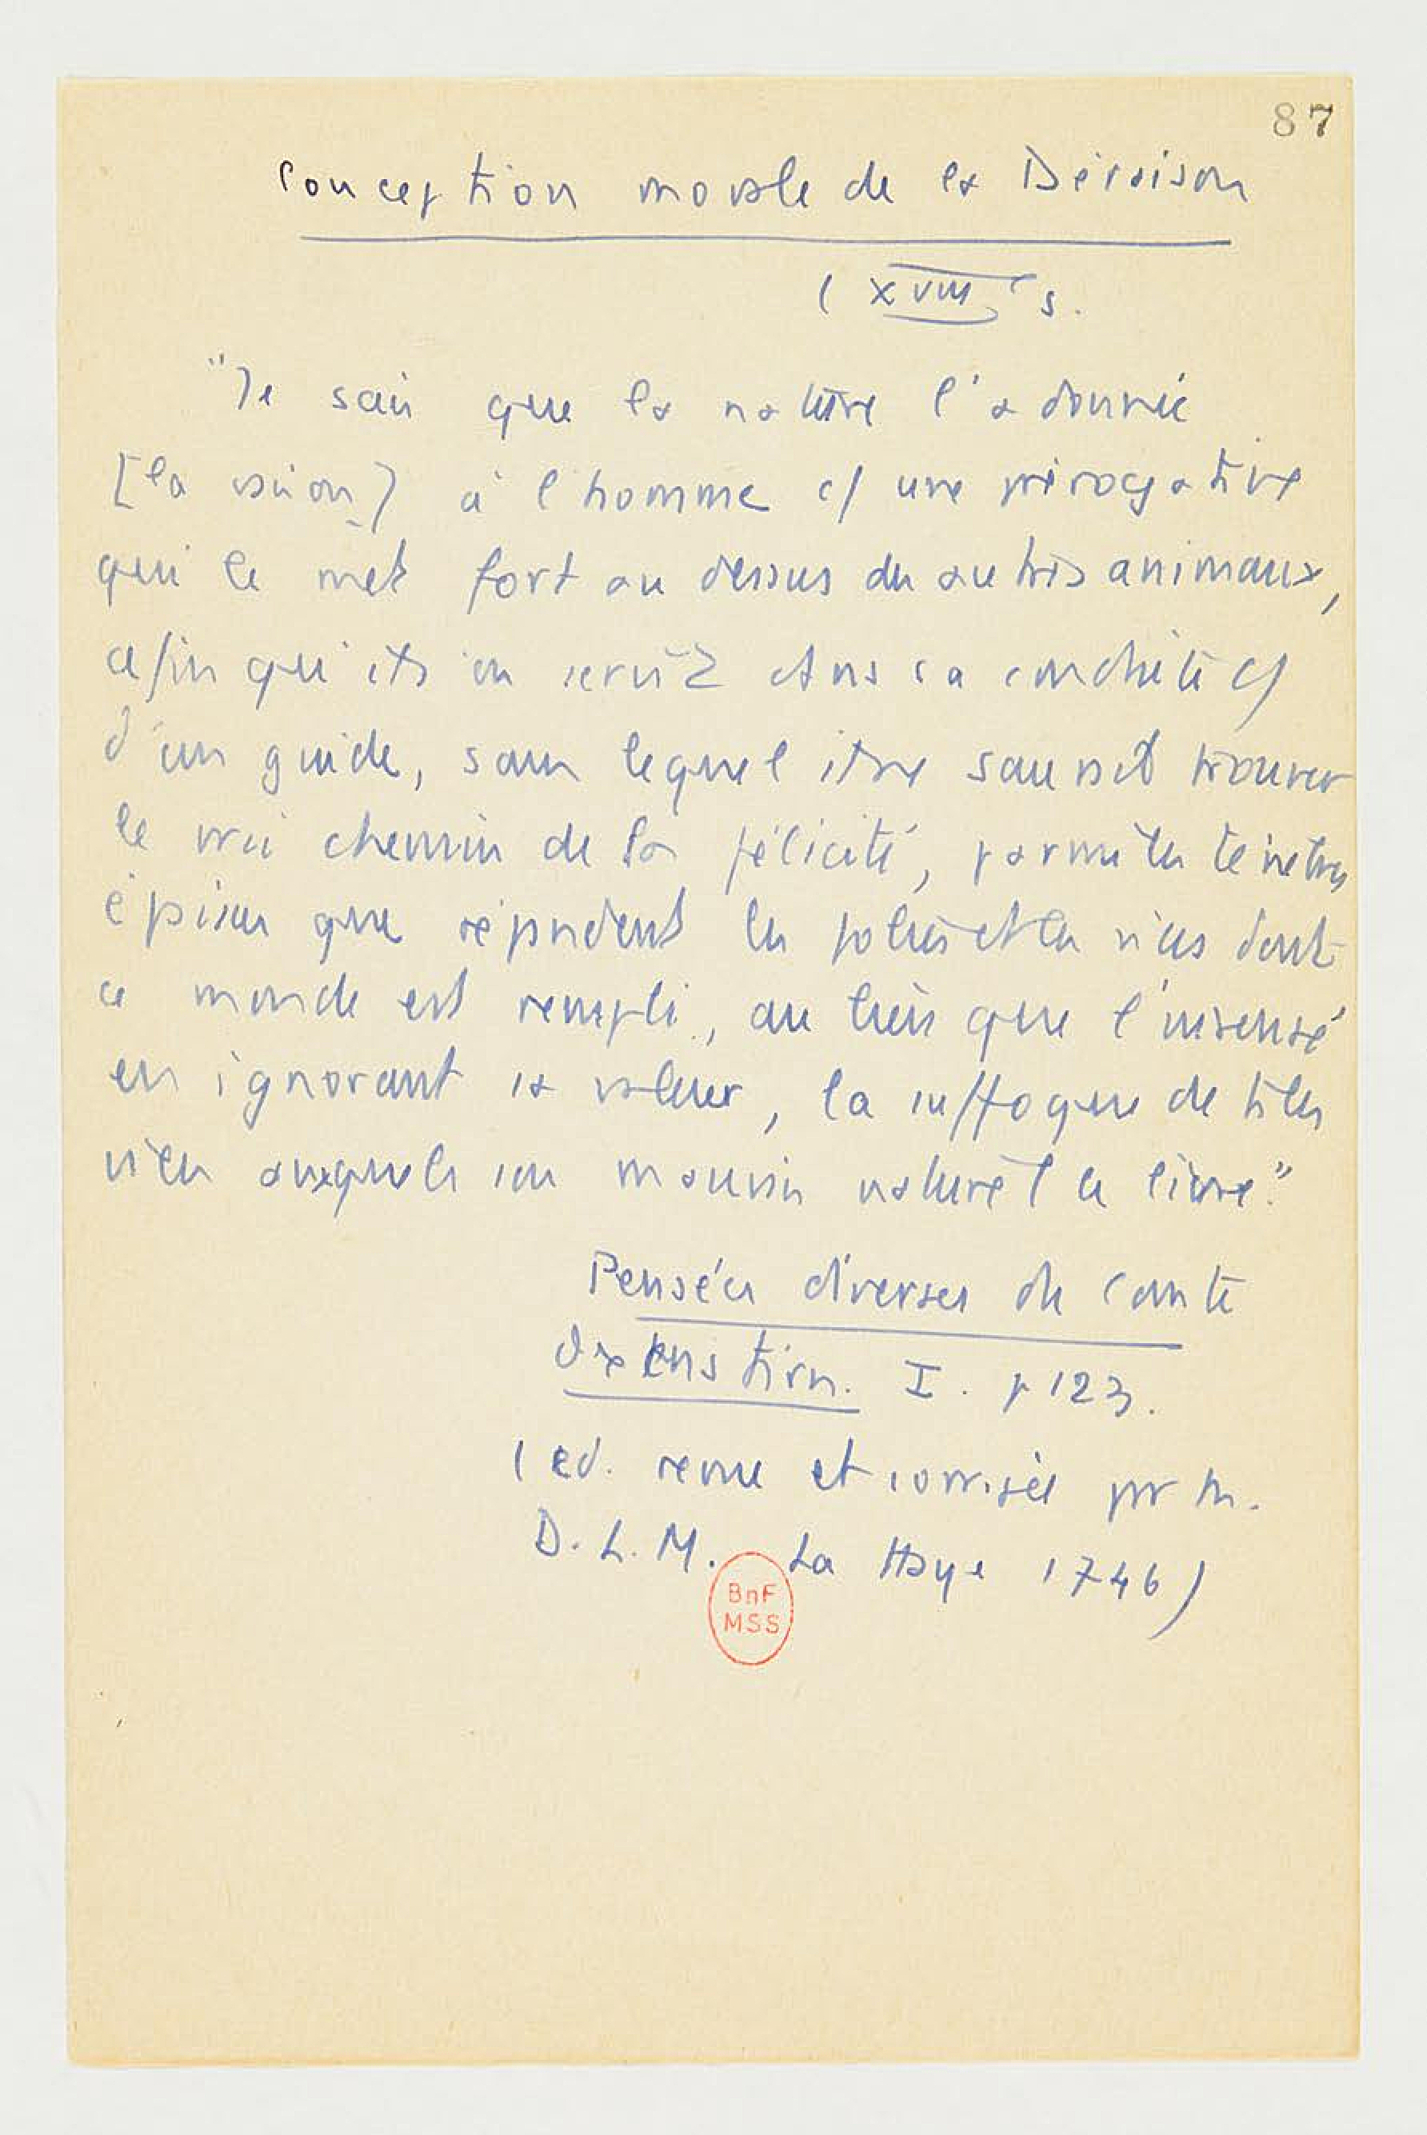 87
Conception morale de la Déraison
(XVIIIe s.
"Je sais que la nature l'a donnée
[la raison] à l'homme c/ une prérogative
qui le met fort au dessus des autres animaux,
afin qu'il s'en servît dans sa conduite c/
d'un guide, sans lequel il ne saurait trouver
le vrai chemin de la félicité, parmi les ténèbres
épaisses que répandent les folies et les vices dont
ce monde est rempli, au lieu que l'insensé
en ignorant sa valeur, la suffoque de tels
vices auxquels son mauvais naturel le livre."
Pensées diverses du Comte
d'Oxenstirn. I. p 123.
(ed. revue et corrigée par M.
D. L. M. La Haye 1746)
BnF
MSS